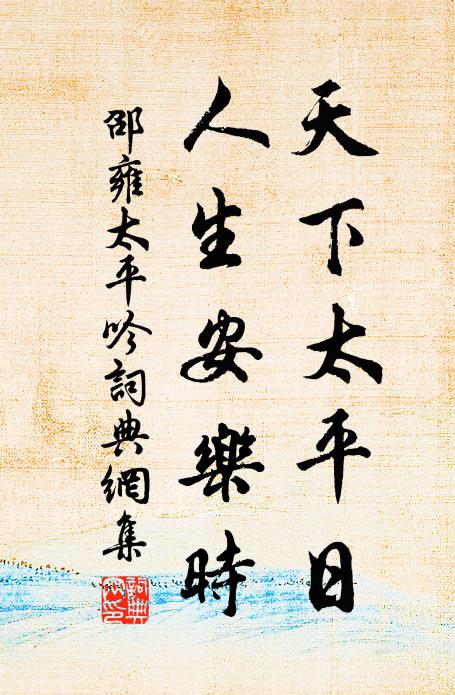 天下太平日
人生安樂時
邵雍太平吟詞典網集